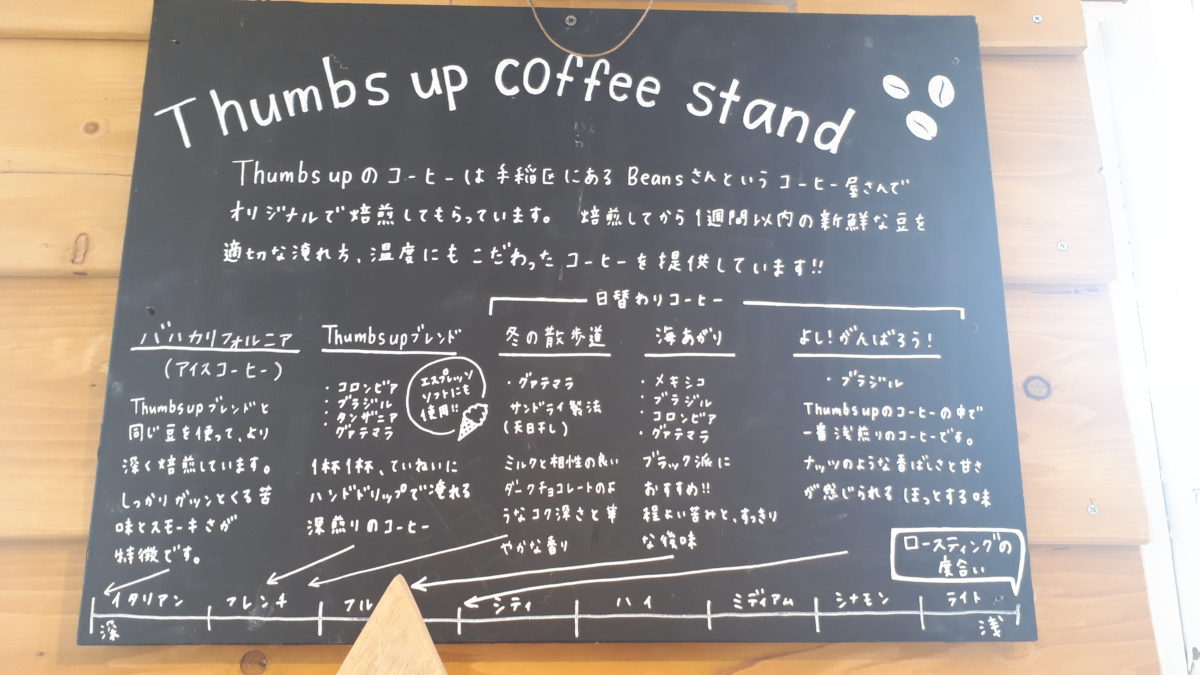 Thumbs up coffee stand
Thumbs upのコーヒーは手稲区にあるBeansさんというコーヒー屋さんで
オリジナルで焙煎してもらっています。 焙煎してから1週間以内の新鮮な豆を
適切な淹れ方、温度にもこだわったコーヒーを提供しています!!
日替わりコーヒー
ババカリフォルニア
(アイスコーヒー)
Thumbs upブレンドと
同じ豆を使って、より
深く焙煎しています。
しっかりガツンとくる苦
味とスモーキさが
特徴です。
Thumbs upブレンド
・コロンビア
・ブラジル
・タンザニア
・グァテマラ
エスプレッソ
ソフトにも
使用!!
1杯1杯、ていねいに
ハンドドリップで淹れる
深煎りのコーヒー
冬の散歩道
・グァテマラ
サンドライ製法
(天日干し)
ミルクと相性の良い
ダークチョコレートのよ
うなコク深さと華
やかな香り
海あがり
・メキシコ
・ブラジル
・コロンビア
・グァテマラ
ブラック派に
おすすめ!!
程よい苦みと、すっきり
な後味
よし!がんばろう!
・ブラジル
Thumbs upのコーヒーの中で
一番浅煎りのコーヒーです。
ナッツのような香ばしさと甘さ
が感じられるほっとする味
ロースティングの
度合い
イタリアン フレンチ フル シティ ハイ ミディアム シナモン ライト
深 浅